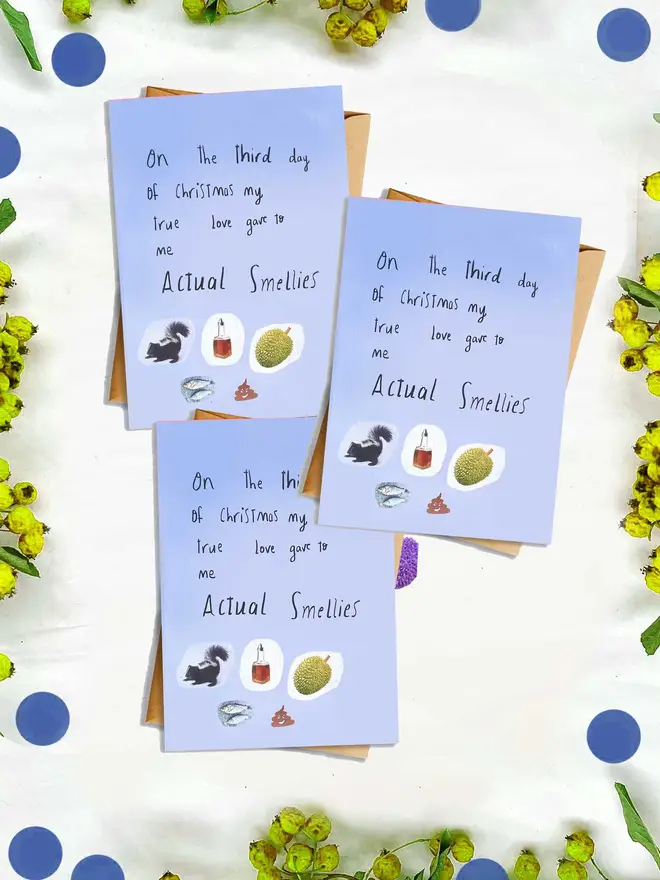 On the third day
Of Christmas my
true love gave to
me
Actual Smellies
On the third day
Of Christmas my
true love gave to
me
Actual Smellies
On the thi
Of Christmas my
true love gave to
me
Actual Smellies